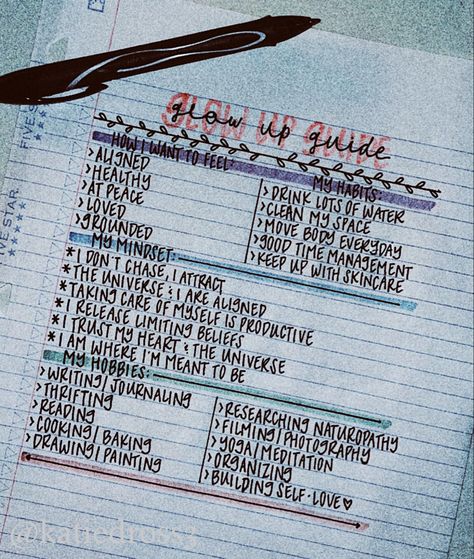 glow up guide
GLOW UP GUIDE
HOW I WANT TO FEEL:
>ALIGNED
>HEALTHY
>AT PEACE
>LOVED
>GROUNDED
MY HABITS:
>DRINK LOTS OF WATER
>CLEAN MY SPACE
>MOVE BODY EVERYDAY
>GOOD TIME MANAGEMENT
>KEEP UP WITH SKINCARE
MY MINDSET:
*I DON'T CHASE, I ATTRACT
*THE UNIVERSE & I ARE ALIGNED
*TAKING CARE OF MYSELF IS PRODUCTIVE
*I RELEASE LIMITING BELIEFS
*I TRUST MY HEART & THE UNIVERSE
*I AM WHERE I'M MEANT TO BE
MY HOBBIES:
>WRITING/JOURNALING
>THRIFTING
>READING
>COOKING/BAKING
>DRAWING/PAINTING
>RESEARCHING NATUROPATHY
>FILMING/PHOTOGRAPHY
>YOGA/MEDITATION
>ORGANIZING
>BUILDING SELF-LOVE♡
FIVE STAR
VE STAR
@katiedross2